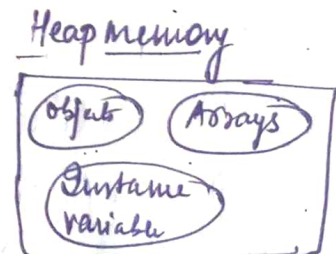 Heap memory
Objects
Arrays
Instance
variables